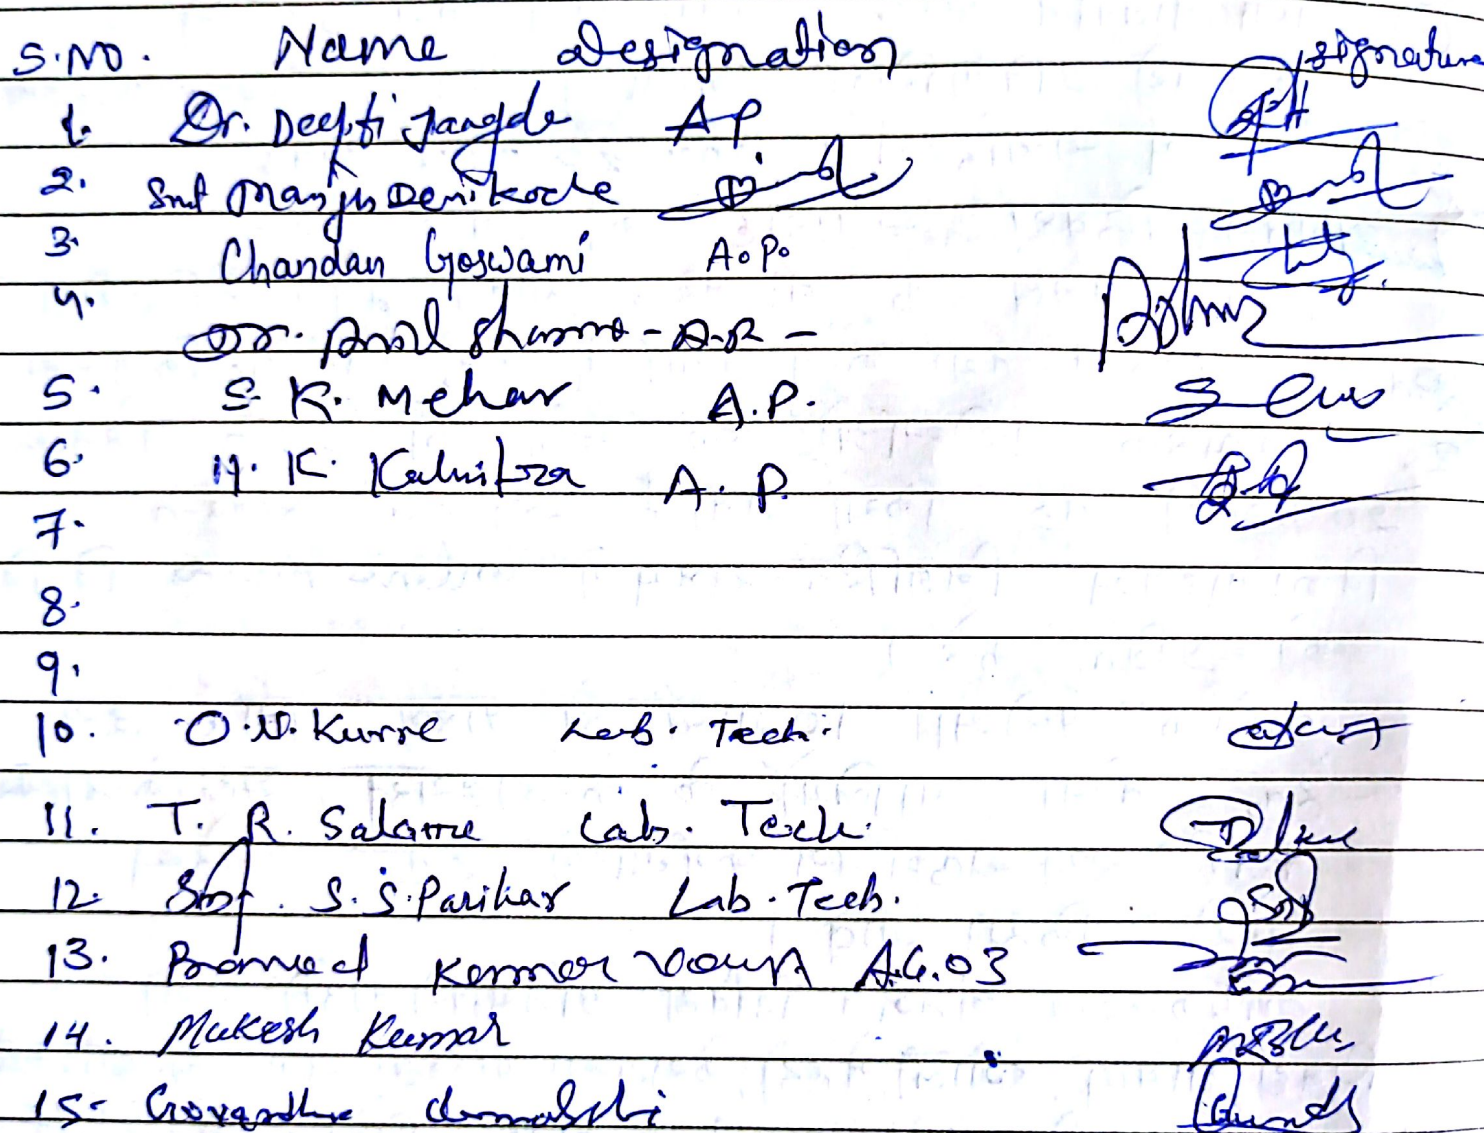 S.NO. Name Designation Signature
1. Dr. Deepti Jangde AP
2. Smt Manju Devi kode
3. Chandan Goswami A.P.
4. Dr. Anil Sharma - A.P. -
5. S. K. Mehar A.P.
6. K. A. P.
7.
8.
9.
10. O.N. Kurre Lab. Tech.
11. T. R. Salame Lab. Tech.
12. Smt. S. S. Parihar Lab. Tech.
13. Pramod Kumar A.G.03
14. Mukesh Kumar
15.